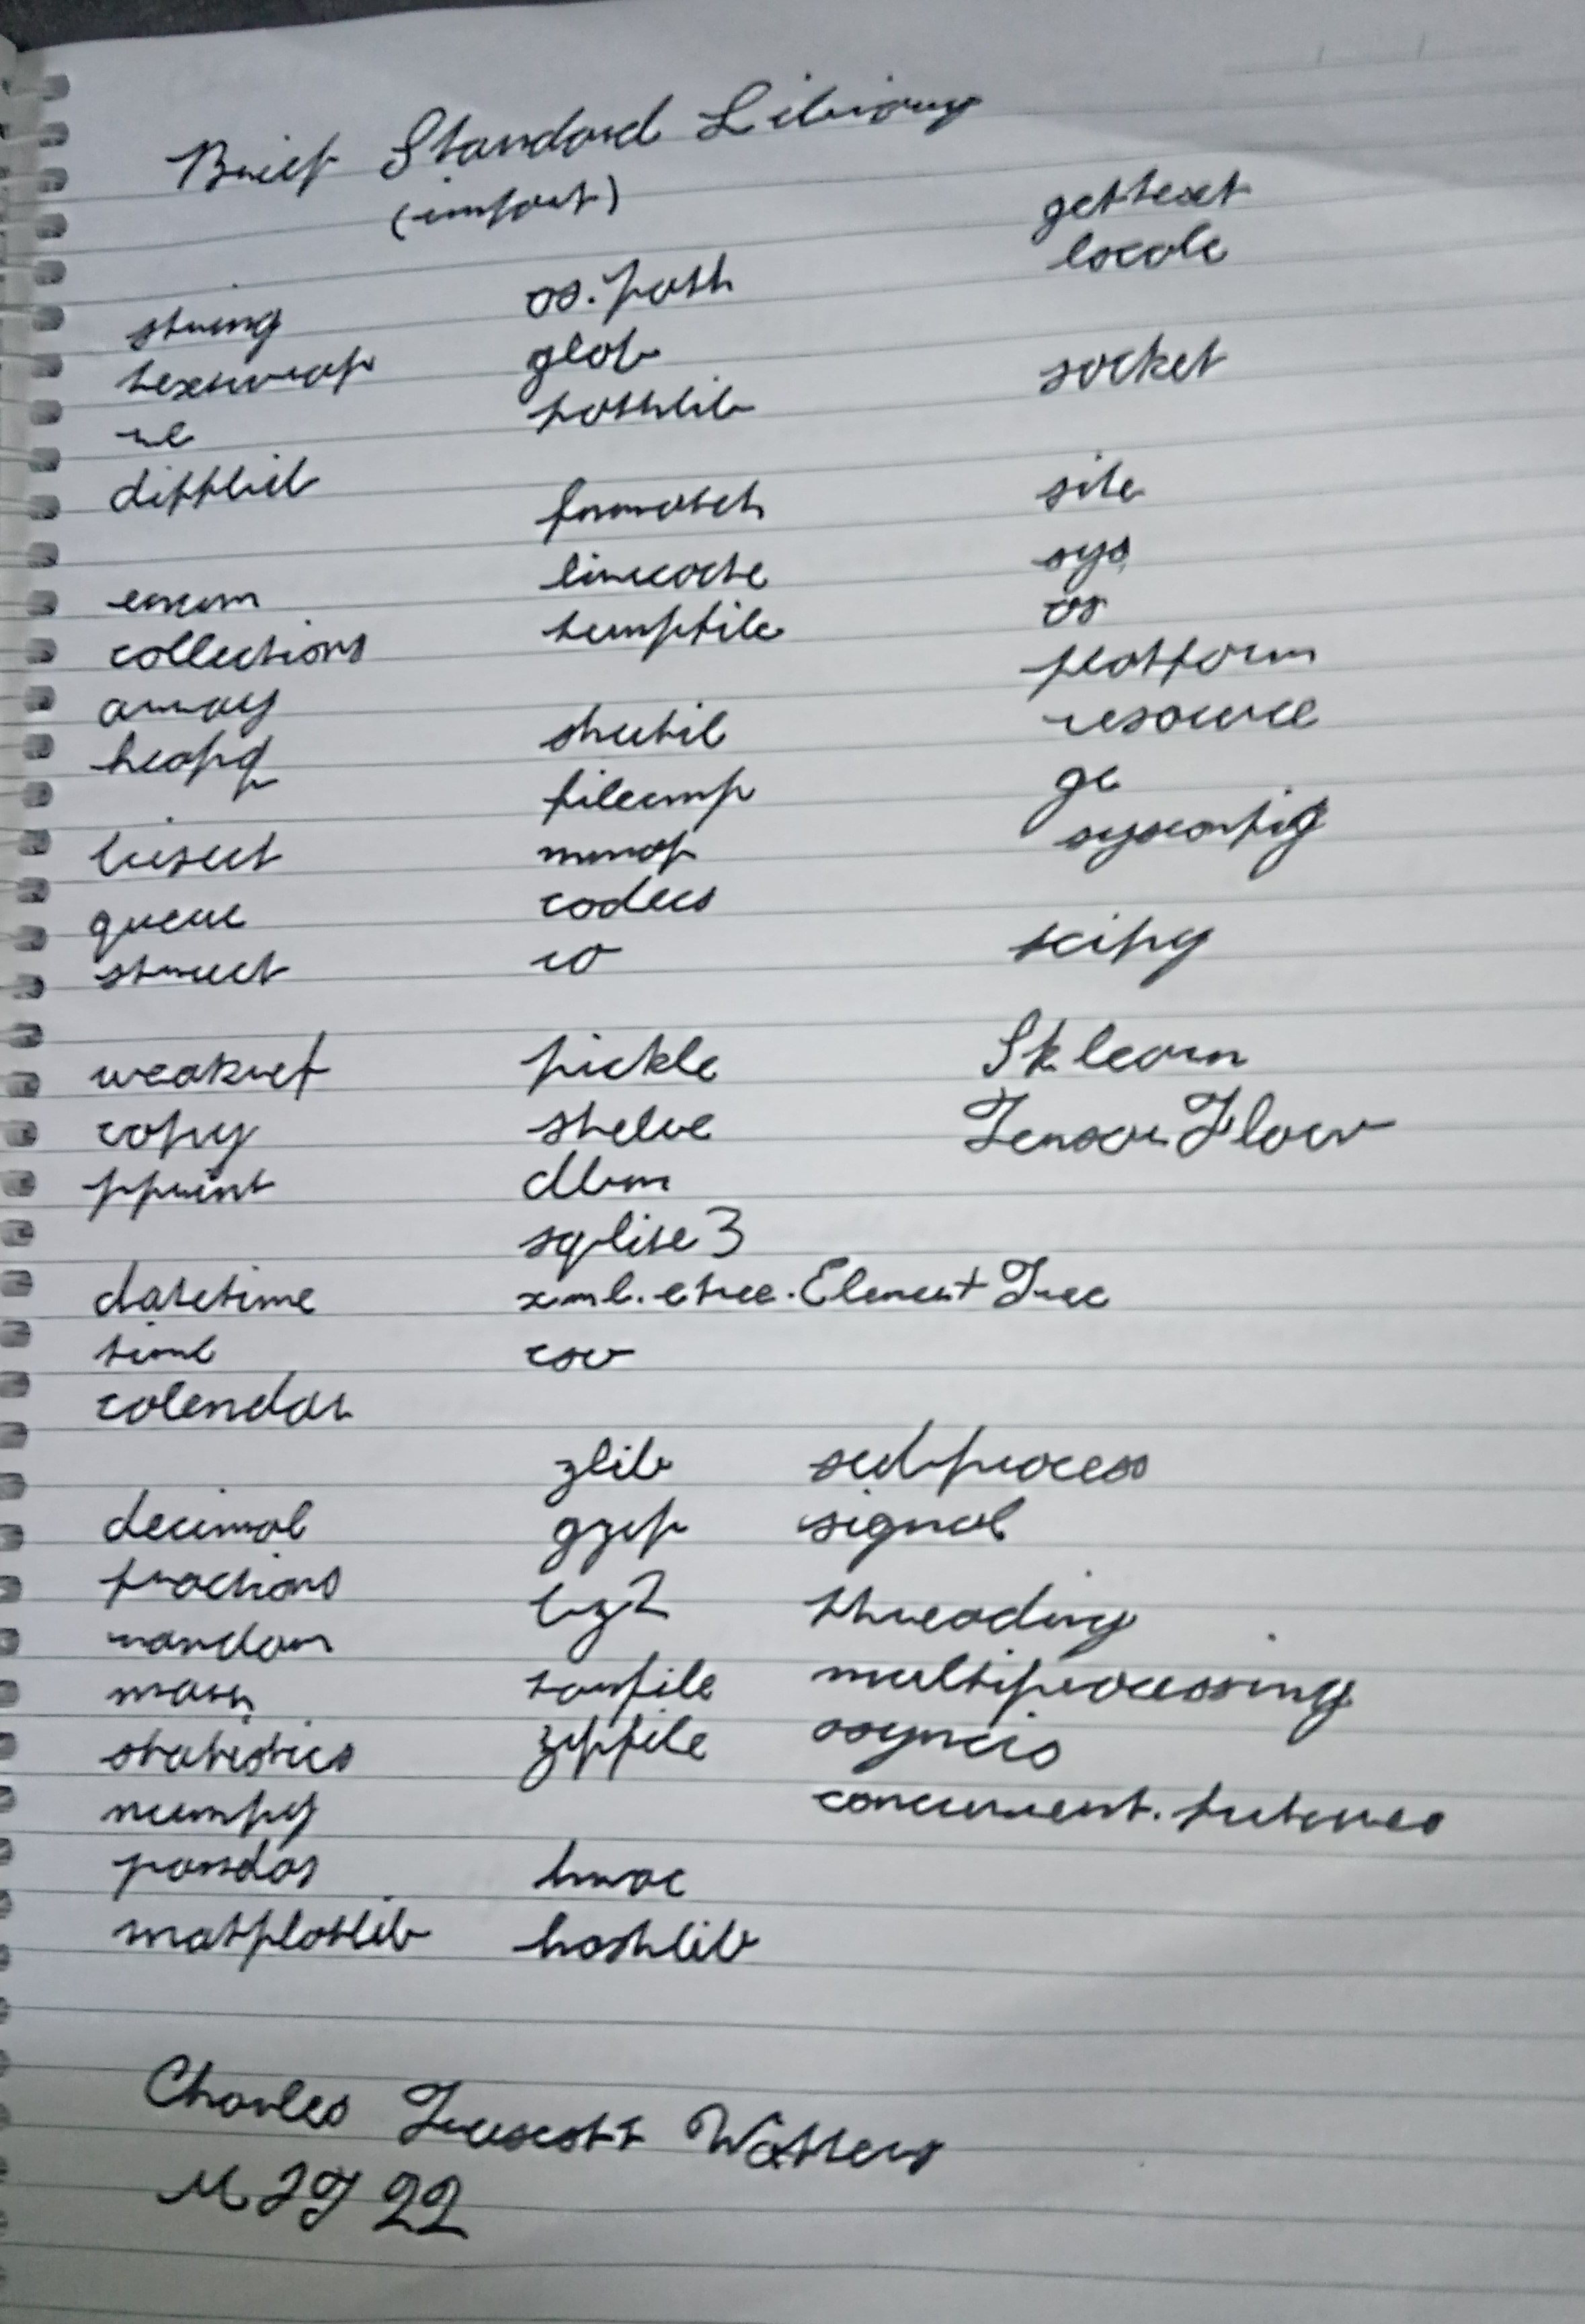 Brief Standard Library
(import)
string
textwrap
re
difflib
enum
collections
array
heapq
bisect
queue
struct
weakref
copy
pprint
datetime
time
calendar
decimal
fractions
random
math
statistics
numpy
pandas
matplotlib
os.path
glob
pathlib
fnmatch
linecache
tempfile
shutil
filecmp
mmap
codecs
io
pickle
shelve
dbm
sqlite3
xml.etree.ElementTree
csv
zlib
gzip
bz2
tarfile
zipfile
hmac
hashlib
gettext
locale
socket
site
sys
os
platform
resource
gc
sysconfig
scipy
Sk learn
TensorFlow
subprocess
signal
threading
multiprocessing
asyncio
concurrent.futures
Charles Truscott Watters
MIT 22